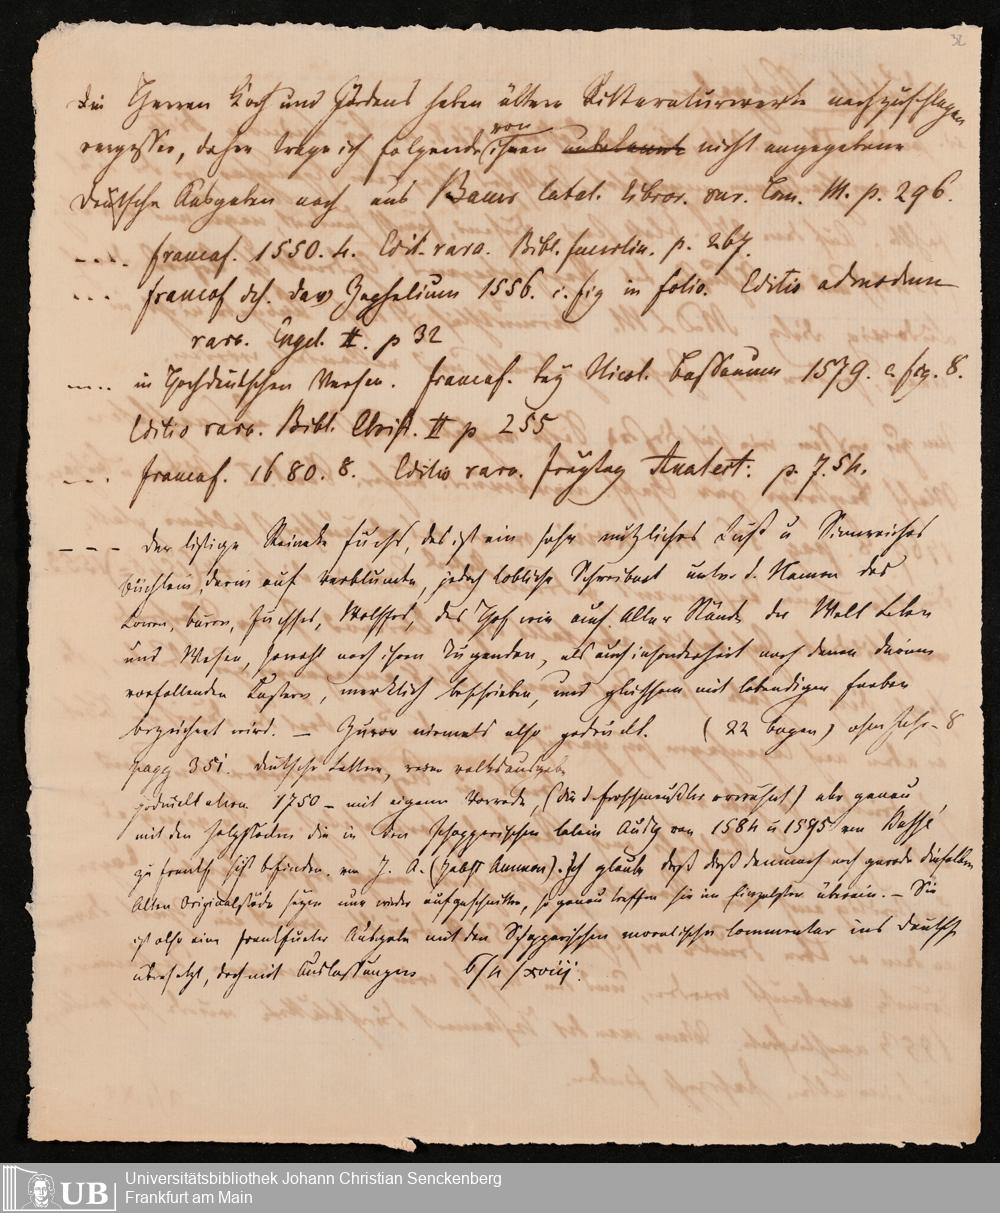 32
Die Herren Koch und Jördens haben ältere Litteraturwerke nachzuschlagen
vergessen, daher trage ich folgende von ihnen unbekannte nicht angegebene
deutsche Ausgaben nach aus Bauer Catal. libror. rar. Tom. III. p. 296.
---. francof. 1550. 4. Edit. rara. Bibl. p. 267.
--- francof dch. Dav Zephelium 1556. c. fig in folio. Editio admodum
rara. Engel. II. p 32
---. in Hochdeutschen Versen. francof. bey Nicol. Bassaeum 1579. c. fig. 8.
Editio rara. Bibl. Christ. II p 255
---. francof. 1680. 8. Editio rara. freytag Analect: p. 754.
--- der listige Reineke Fuchs, das ist ein sehr nützliches Lust u Sinnreiches
Büchlein, darin auf verblumte, jedoch lobliche Schreibart unter d. Namen des
Lowen, Bären, Fuchses, Wolffes, das Hof wie auch Aller Stände der Welt Leben
und Wesen, sowohl nach ihren Tugenden, als auch insonderheit nach denen darinn
vorfallenden Lastern, merklich beschrieben, und gleichsam mit lebendigen farben
bezeichnet wird. — Zuvor niemals also gedruckt. (22 bogen) ohne Jahr - 8
pagg 351. deutsche Lettern, neue volksausgabe
gedruckt etwa 1750 - mit eigener Vorrede, (die d. froschmeußler erwähnt) aber genau
mit den Holzstöcken die in den Schopperischen latein Ausg von 1584 u 1595 von Bassé
zu frankf sich befinden. von J. A. (Jobst Ammon). Ich glaube daß daß dennoch noch gerade dieselben
Alten Originalstöcke seyen nur wieder aufgeschnitten, so genau treffen sie im Einzelsten überein. — Sie
ist also eine frankfurter Ausgabe mit den Schopperischen moralischen Commentar ins deutsch
übersetzt, doch mit Auslassungen 6/4/xviij.
Universitätsbibliothek Johann Christian Senckenberg
Frankfurt am Main
UB